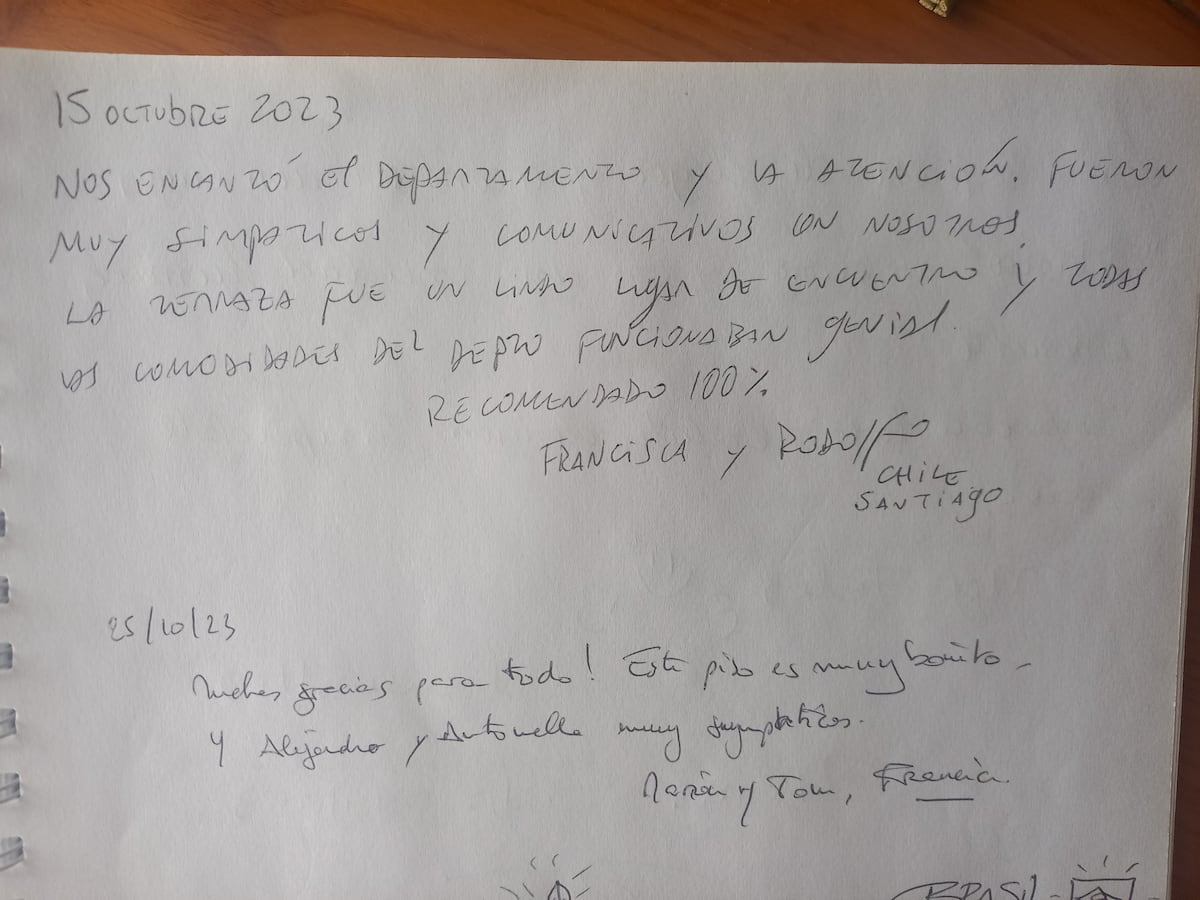 15 OCTUBRE 2023
NOS ENCANTÓ El DEPARTAMENTO Y LA ATENCIÓN. FUERON
MUY SIMPATICOS Y COMUNICATIVOS CON NOSOTROS.
LA TERRAZA FUE UN LINDO LUGAR DE ENCUENTRO Y TODAS
LAS COMODIDADES DEL DEPTO FUNCIONABAN GENIAL.
RECOMENDADO 100%
FRANCISCA y RODOLFO
CHILE
SANTIAGO
25/10/23
Muchas gracias para todo! Este piso es muy bonito -
Y Alejandro y Antonella muy
y Tom, Francia.
BRASIL